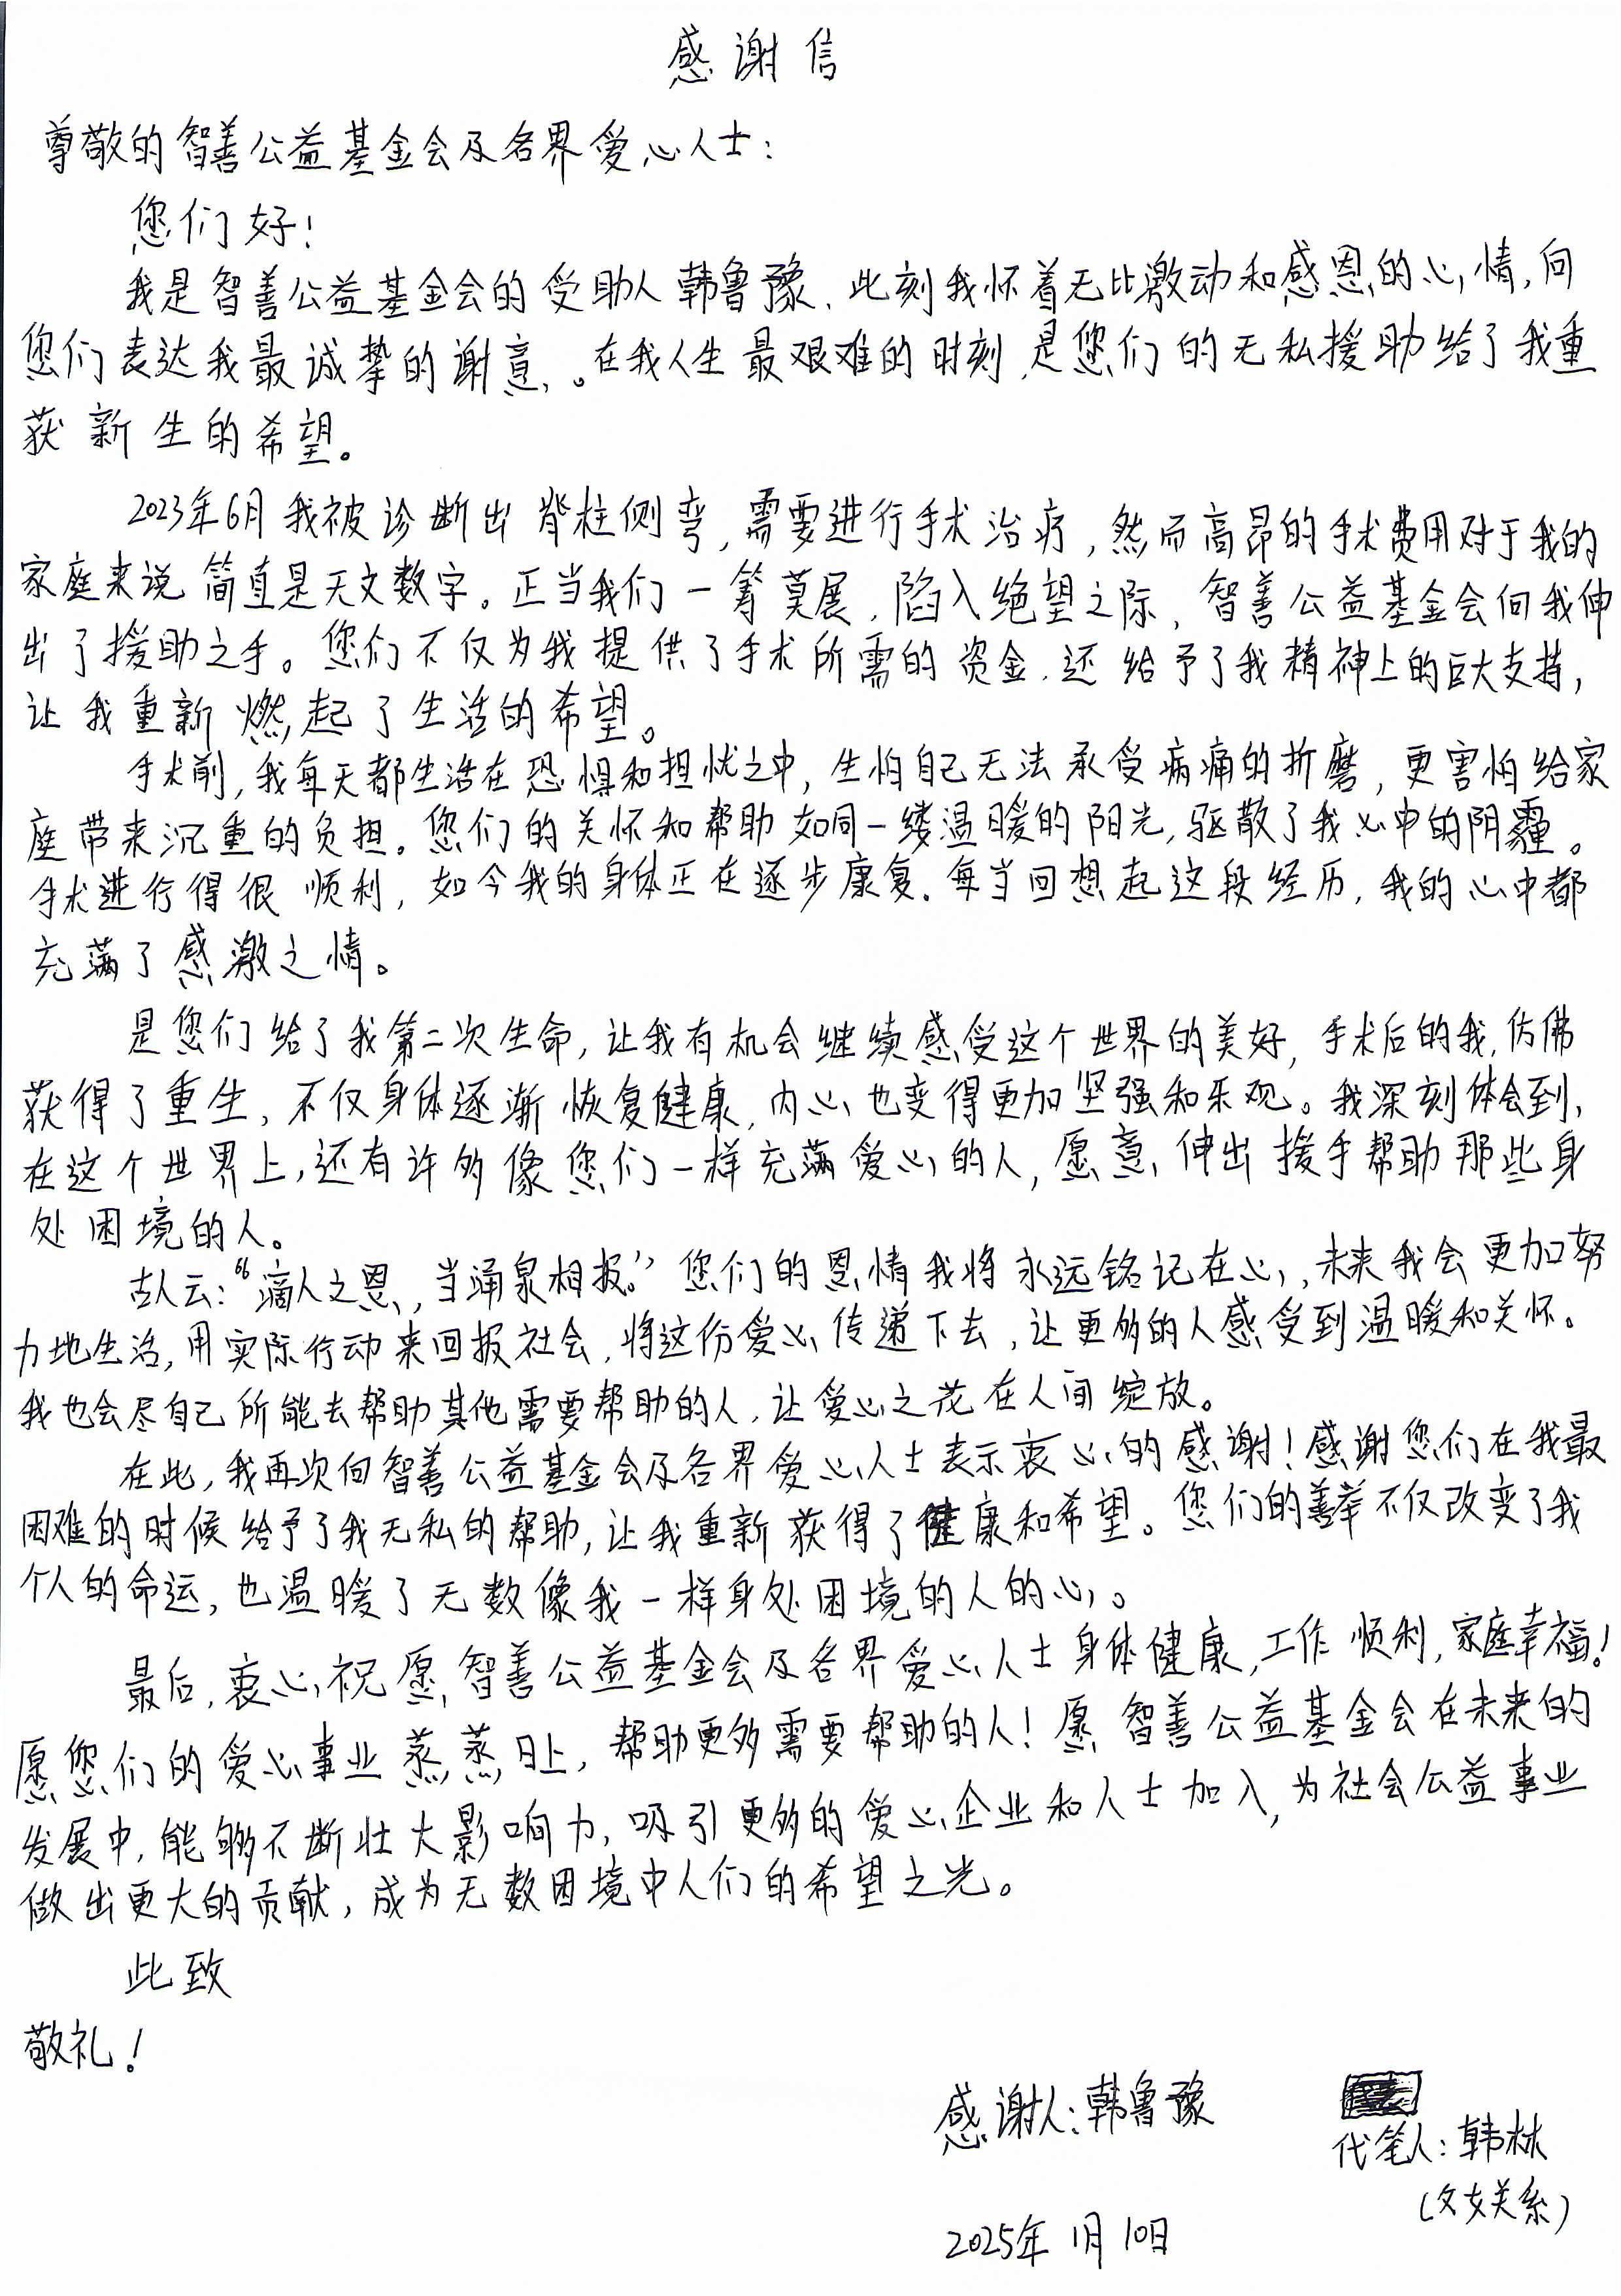 感谢信
尊敬的智善公益基金会及各界爱心人士：
您们好！
我是智善公益基金会的受助人韩鲁豫，此刻我怀着无比激动和感恩的心情，向
您们表达我最诚挚的谢意，。在我人生最艰难的时刻，是您们的无私援助给了我重
获新生的希望。
2023年6月我被诊断出脊柱侧弯，需要进行手术治疗，然而高昂的手术费用对于我的
家庭来说简直是天文数字。正当我们一筹莫展，陷入绝望之际，智善公益基金会向我伸
出了援助之手。您们不仅为我提供了手术所需的资金，还给予了我精神上的巨大支持，
让我重新燃起了生活的希望。
手术前，我每天都生活在恐惧和担忧之中，生怕自己无法承受病痛的折磨，更害怕给家
庭带来沉重的负担。您们的关怀和帮助如同一缕温暖的阳光，驱散了我心中的阴霾。
手术进行得很顺利，如今我的身体正在逐步康复。每当回想起这段经历，我的心中都
充满了感激之情。
是您们给了我第二次生命，让我有机会继续感受这个世界的美好，手术后的我，仿佛
获得了重生，不仅身体逐渐恢复健康，内心也变得更加坚强和乐观。我深刻体会到，
在这个世界上，还有许多像您们一样充满爱心的人，愿意伸出援手帮助那些身
处困境的人。
古人云：“滴人之恩，当涌泉相报。”您们的恩情我将永远铭记在心，未来我会更加努
力地生活，用实际行动来回报社会，将这份爱心传递下去，让更多的人感受到温暖和关怀。
我也会尽自己所能去帮助其他需要帮助的人，让爱心之花在人间绽放。
在此，我再次向智善公益基金会及各界爱心人士表示衷心的感谢！感谢您们在我最
困难的时候给予了我无私的帮助，让我重新获得了健康和希望。您们的善举不仅改变了我
个人的命运，也温暖了无数像我一样身处困境的人的心。
最后，衷心祝愿智善公益基金会及各界爱心人士身体健康，工作顺利，家庭幸福！
愿您们的爱心事业蒸蒸日上，帮助更多需要帮助的人！愿智善公益基金会在未来的
发展中，能够不断壮大影响力，吸引更多的爱心企业和人士加入，为社会公益事业
做出更大的贡献，成为无数困境中人们的希望之光。
此致
敬礼！
感谢人：韩鲁豫
代笔人：韩林
（父女关系）
2025年1月10日